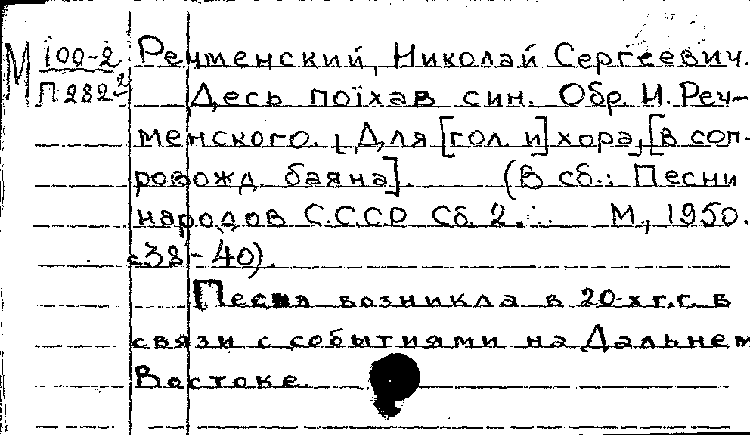 М 100-2 Речменский, Николай Сергеевич.
П 282² Десь поїхав син. Обр. Н. Реч-
менского. Для [гол. и] хора, [в соп-
ровожд. баяна]. (В сб.: Песни
народов С.С.С.Р. Сб. 2. М., 1950.
с38-40).
Песня возникла в 20-х г.г. в
связи с событиями на Дальнем
Востоке.